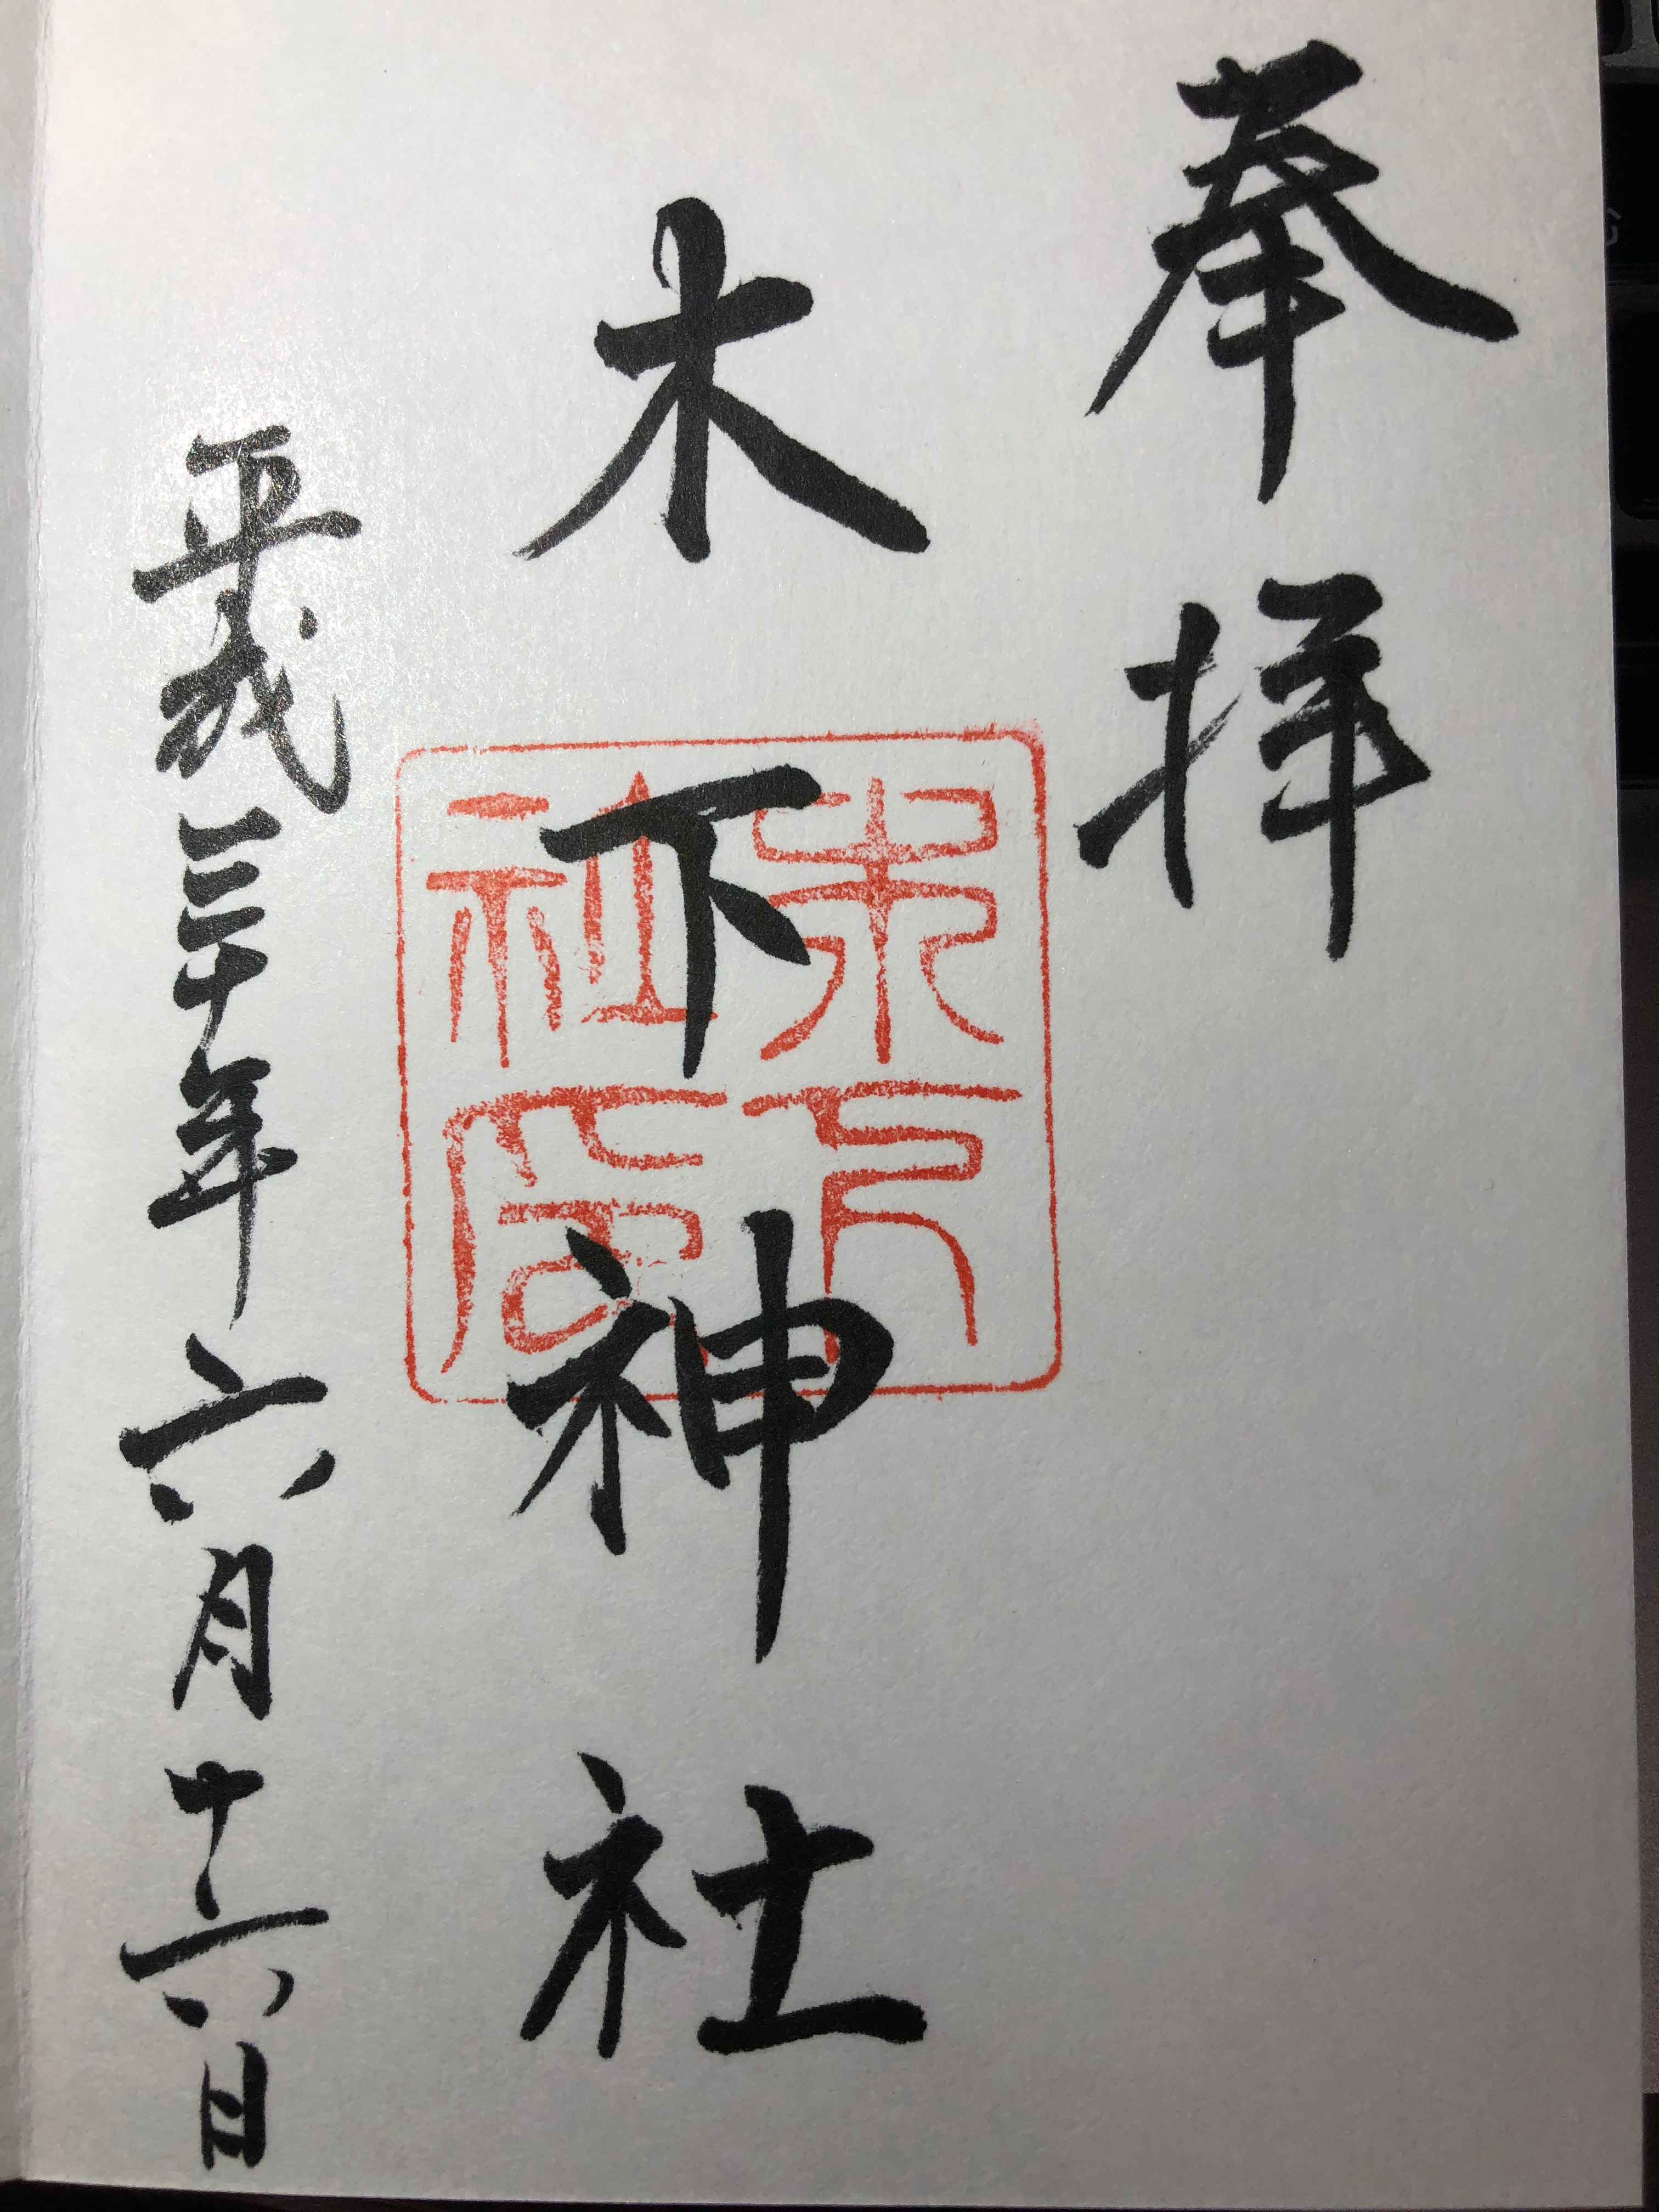 奉拝
木下神社
平成三十年六月十六日
社印